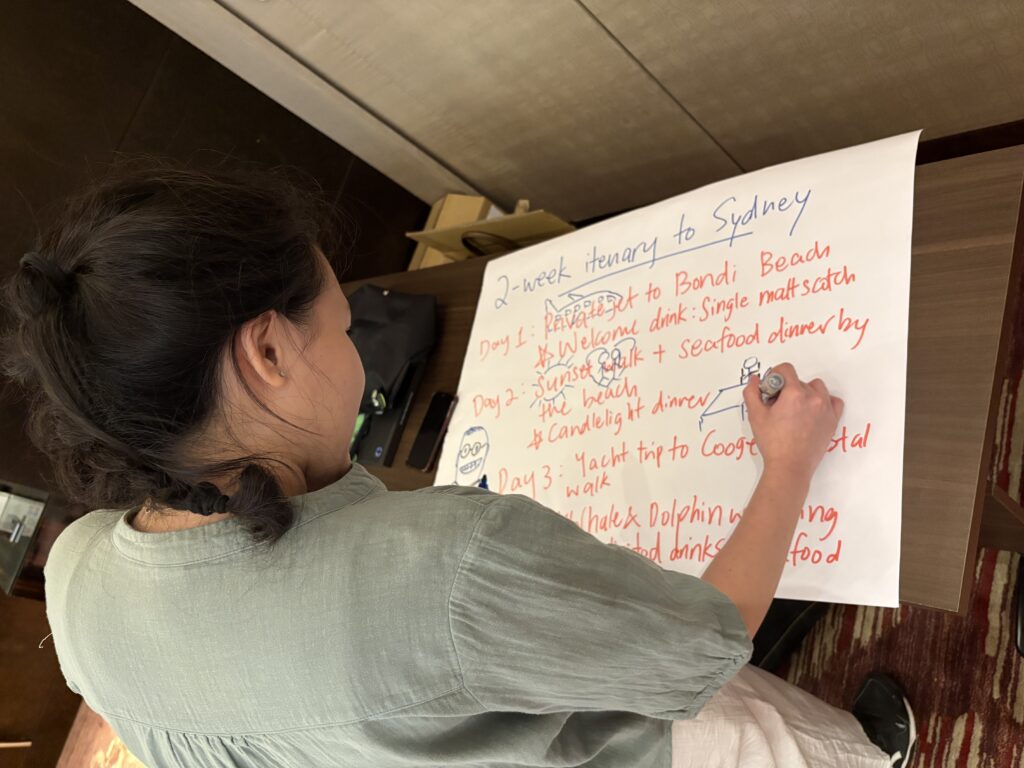 2-week itenary to Sydney
Day 1: Private Jet to Bondi Beach
* Welcome drink: Single malt scotch
Day 2: Sunset walk + seafood dinner by
the beach
* Candlelight dinner
Day 3: Yacht trip to
walk
Whale & Dolphin
drinks